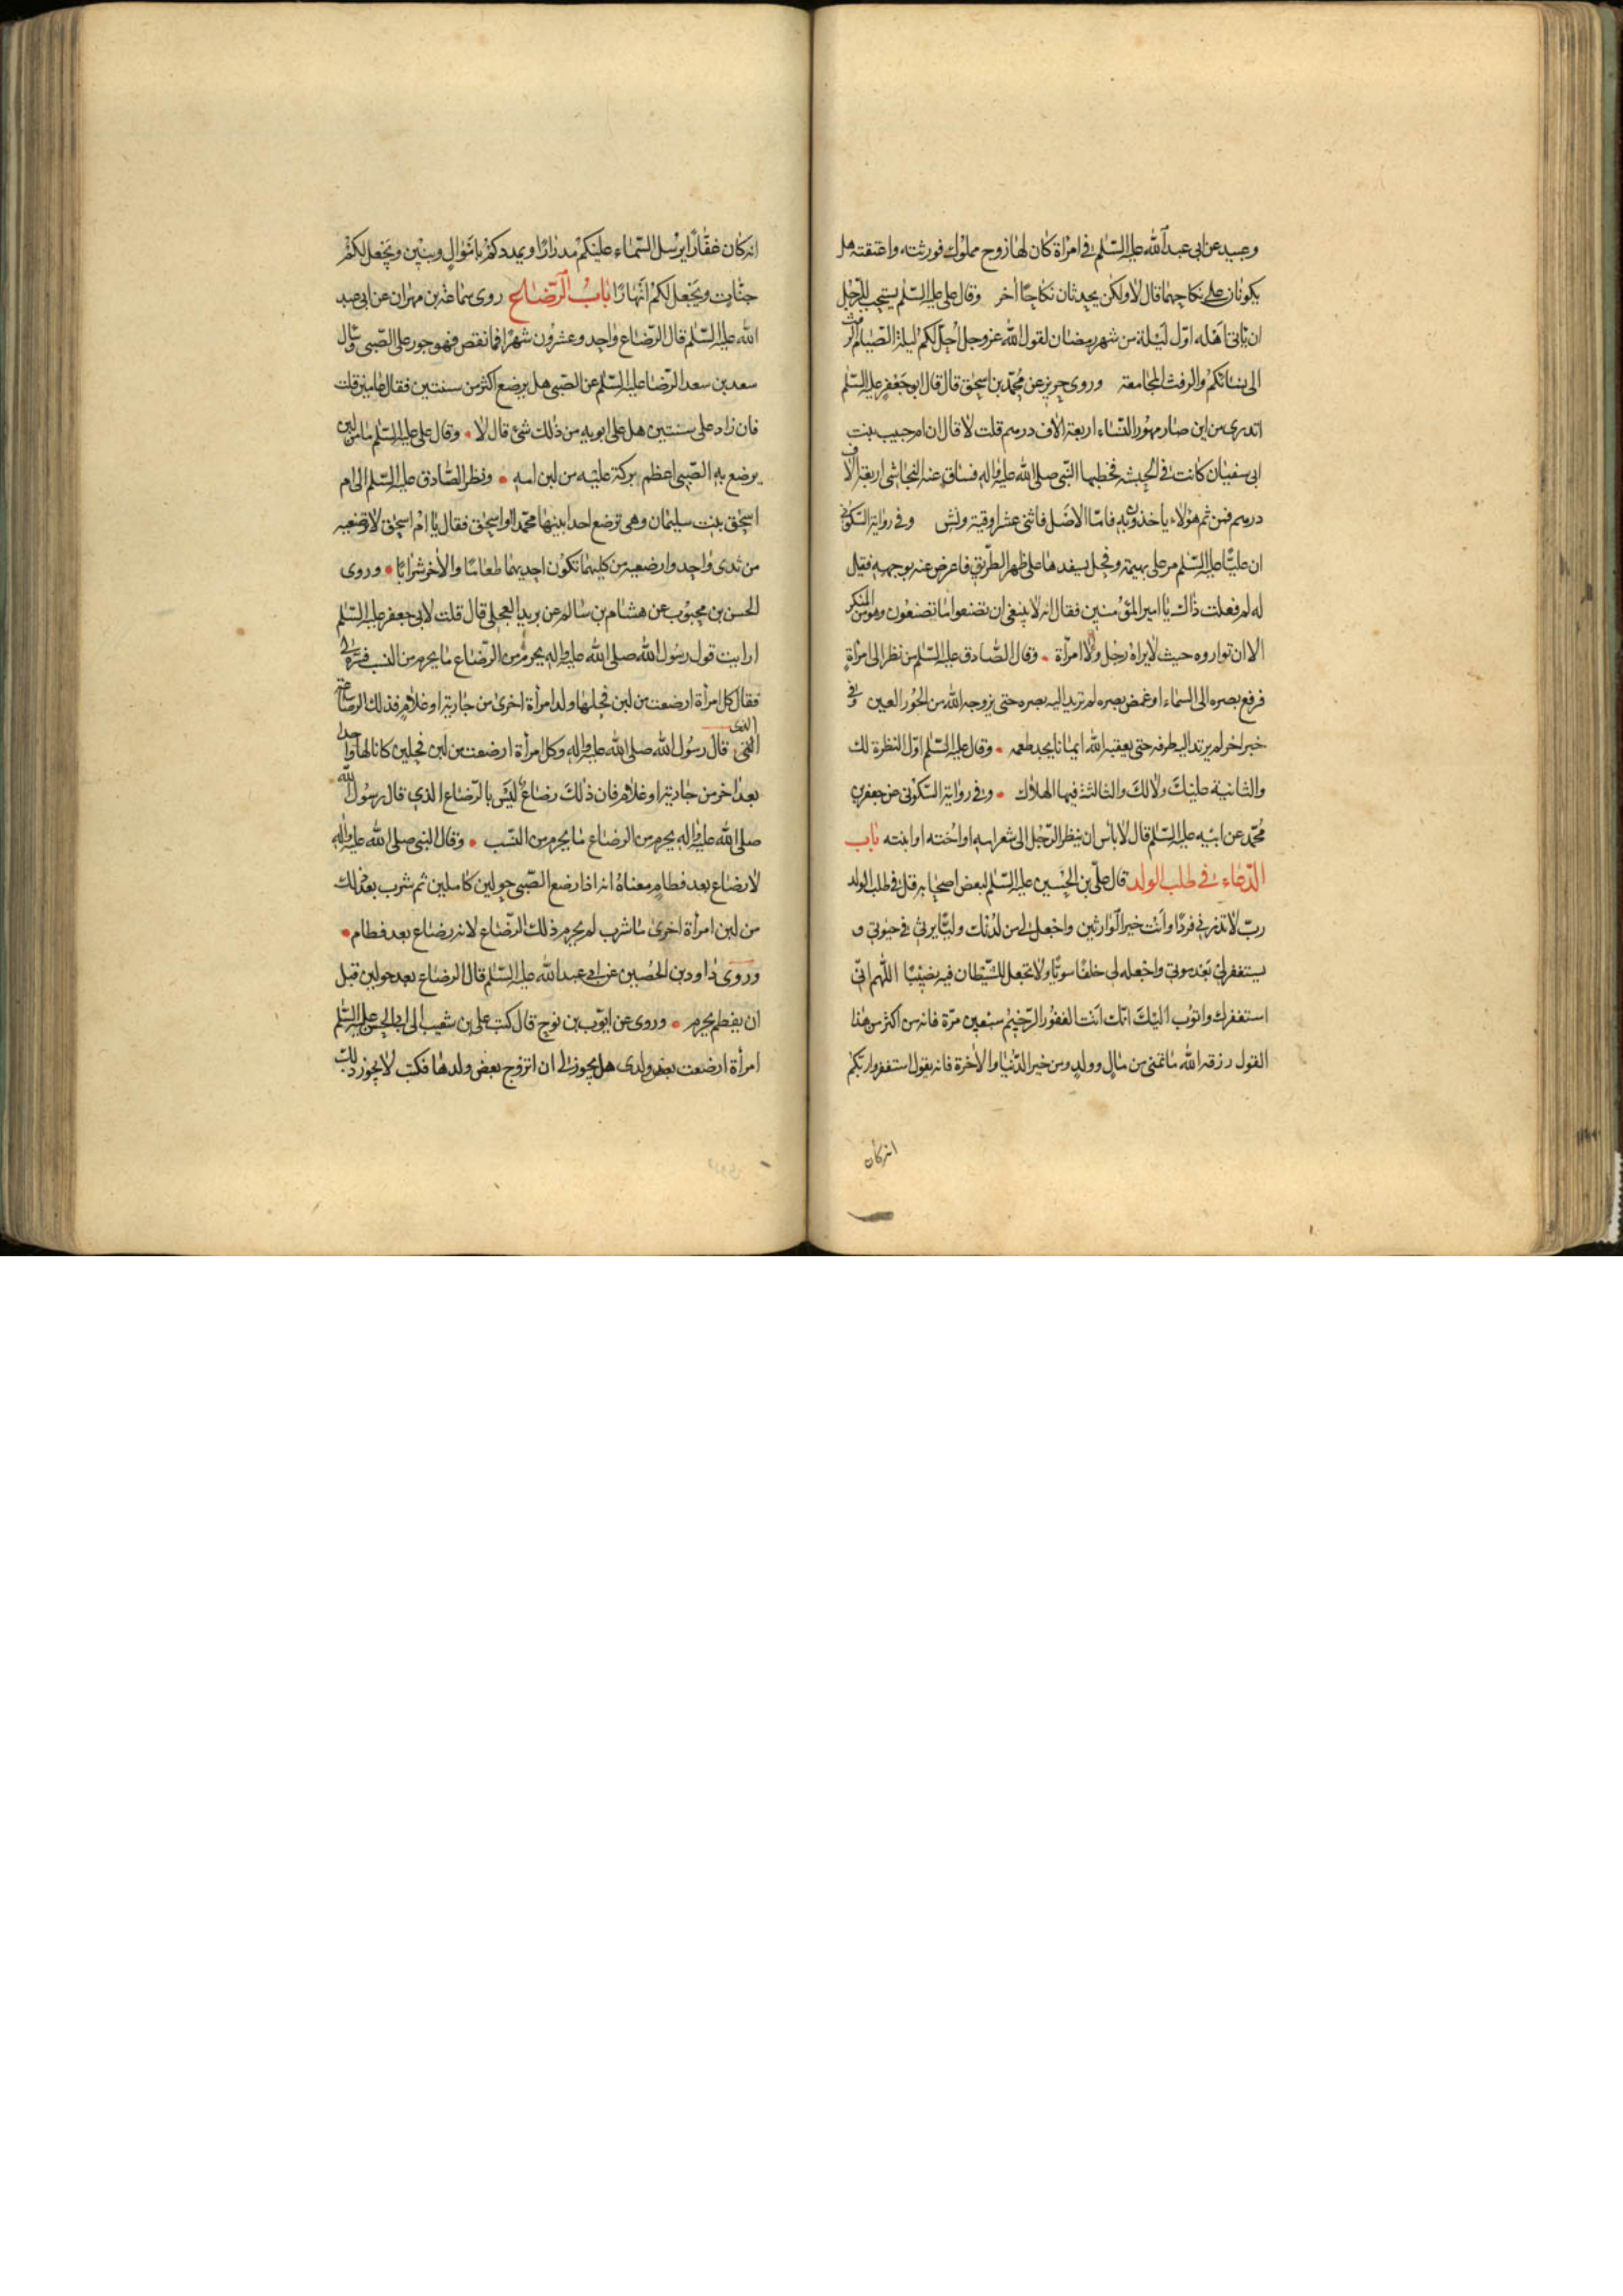 وعبيد عن ابى عبدالله عليه السّلم فى امرأة كان لها زوج مملوك فورثته واعتقته هل
يكونان على نكاحهما قال لا ولكن يجددان نكاحًا آخر وقال على عليه السّلم يستحب للرّجل
ان ياتى اهله اوّل ليلة من شهر رمضان لقول الله عزوجل احلّ لكم ليلة الصّيام الرفث
الى نسائكم والرفث المجامعة وروى حريز عن محمّد بن اسحٰق قال قال ابو جعفر عليه السّلم
اتدرى من اين صار مهور النساء اربعة الاف درهم قلت لا قال ان ام حبيب بنت
ابى سفيان كانت فى الحبشه فخطبها النّبى صلى الله عليه واله فساق عنه النجاشى اربعة الاف
درهم فمن ثم هؤلاء ياخذون به فامّا الاصل فاثنى عشر اوقية ونش وفى رواية السكونى
ان عليّا عليه السّلم مر على بهيمة وفحل يسفدها على ظهر الطّريق فاعرض عنه بوجهه فقيل
له لم فعلت ذلك يا امير المؤمنين فقال انه لا ينبغى ان تصنعوا ما تصنعون وهو من المنكر
الا ان تواروه حيث لا يراه رجل ولا امرأة وقال الصّادق عليه السّلم من نظر الى امرأة
فرفع بصره الى السماء او غمض بصره لم يرتد اليه بصره حتى يزوجه الله من الحور العين وفى
خبر اخر لم يرتد اليه طرفه حتى يعقبه الله ايمانا يجد طعمه وقال عليه السّلم اوّل النظرة لك
والثانية عليك ولا لك والثالثة فيها الهلاك وفى رواية السّكونى عن جعفر بن
محمّد عن ابيه عليه السّلم قال لا باس ان ينظر الرّجل الى شعر امه او اخته او ابنته باب
الدّعاء فى طلب الولد قال علىّ بن الحسين عليه السّلم لبعض اصحابه قل فى طلب الولد
ربّ لا تذرنى فردًا وانت خير الوارثين واجعل لى من لدنك وليّا يرثنى فى حيوتى و
يستغفر لى بعد موتى واجعله لى خلفًا سويًّا ولا تجعل للشّيطان فيه نصيبًا اللّهم انّى
استغفرك واتوب اليك انّك انت الغفور الرّحيم سبعين مرّة فانه من اكثر من هذا
القول رزقه الله ما تمنى من مال وولد ومن خير الدّنيا والاخرة فانه يقول استغفروا ربّكم
انه كان
انه كان غفّارًا يرسل السّماء عليكم مدرارًا ويمددكم باموال وبنين ويجعل لكم
جنّات ويجعل لكم انهارًا باب الرّضاع روى سماعة بن مهران عن ابى عبد
الله عليه السّلم قال الرّضاع واحد وعشرون شهرًا فما نقص فهو جور على الصّبى وسال
سعد بن سعد الرّضا عليه السّلم عن الصّبى هل يرضع اكثر من سنتين فقال عامين قلت
فان زاد على سنتين هل على ابويه من ذلك شئ قال لا وقال على عليه السّلم ما من لبن
يرضع به الصّبى اعظم بركة عليه من لبن امه ونظر الصّادق عليه السّلم الى ام
اسحٰق بنت سليمان وهى ترضع احد ابنيها محمّدا او اسحٰق فقال يا ام اسحٰق لا ترضعيه
من ثدى واحد وارضعيه من كليهما تكون احديهما طعامًا والاخر شرابًا وروى
الحسن بن محبوب عن هشام بن سالم عن بريد العجلى قال قلت لابى جعفر عليه السّلم
ارايت قول رسول الله صلى الله عليه واله يحرم من الرّضاع ما يحرم من النسب فسّره لى
فقال كل امرأة ارضعت من لبن فحلها ولد امرأة اخرى من جارية او غلام فذلك الرضاع
الذى قال رسول الله صلى الله عليه واله وكل امرأة ارضعت من لبن فحلين كانا لها واحدا
بعد اخر من جارية او غلام فان ذلك رضاع ليس بالرّضاع الذى قال رسول الله
صلى الله عليه واله يحرم من الرضاع ما يحرم من النّسب وقال النبى صلى الله عليه واله
لا رضاع بعد فطام معناه انه اذا رضع الصّبى حولين كاملين ثم شرب بعد ذلك
من لبن امرأة اخرى ما شرب لم يحرم ذلك الرّضاع لانه رضاع بعد فطام
وروى داود بن الحصين عن ابى عبدالله عليه السّلم قال الرضاع بعد حولين قبل
ان يفطم يحرم وروى عن ايّوب بن نوح قال كتب على بن شعيب الى ابى الحسن عليه السّلم
امرأة ارضعت بعض ولدى هل يجوز لى ان اتزوج بعض ولدها فكتب لا يجوز ذلك